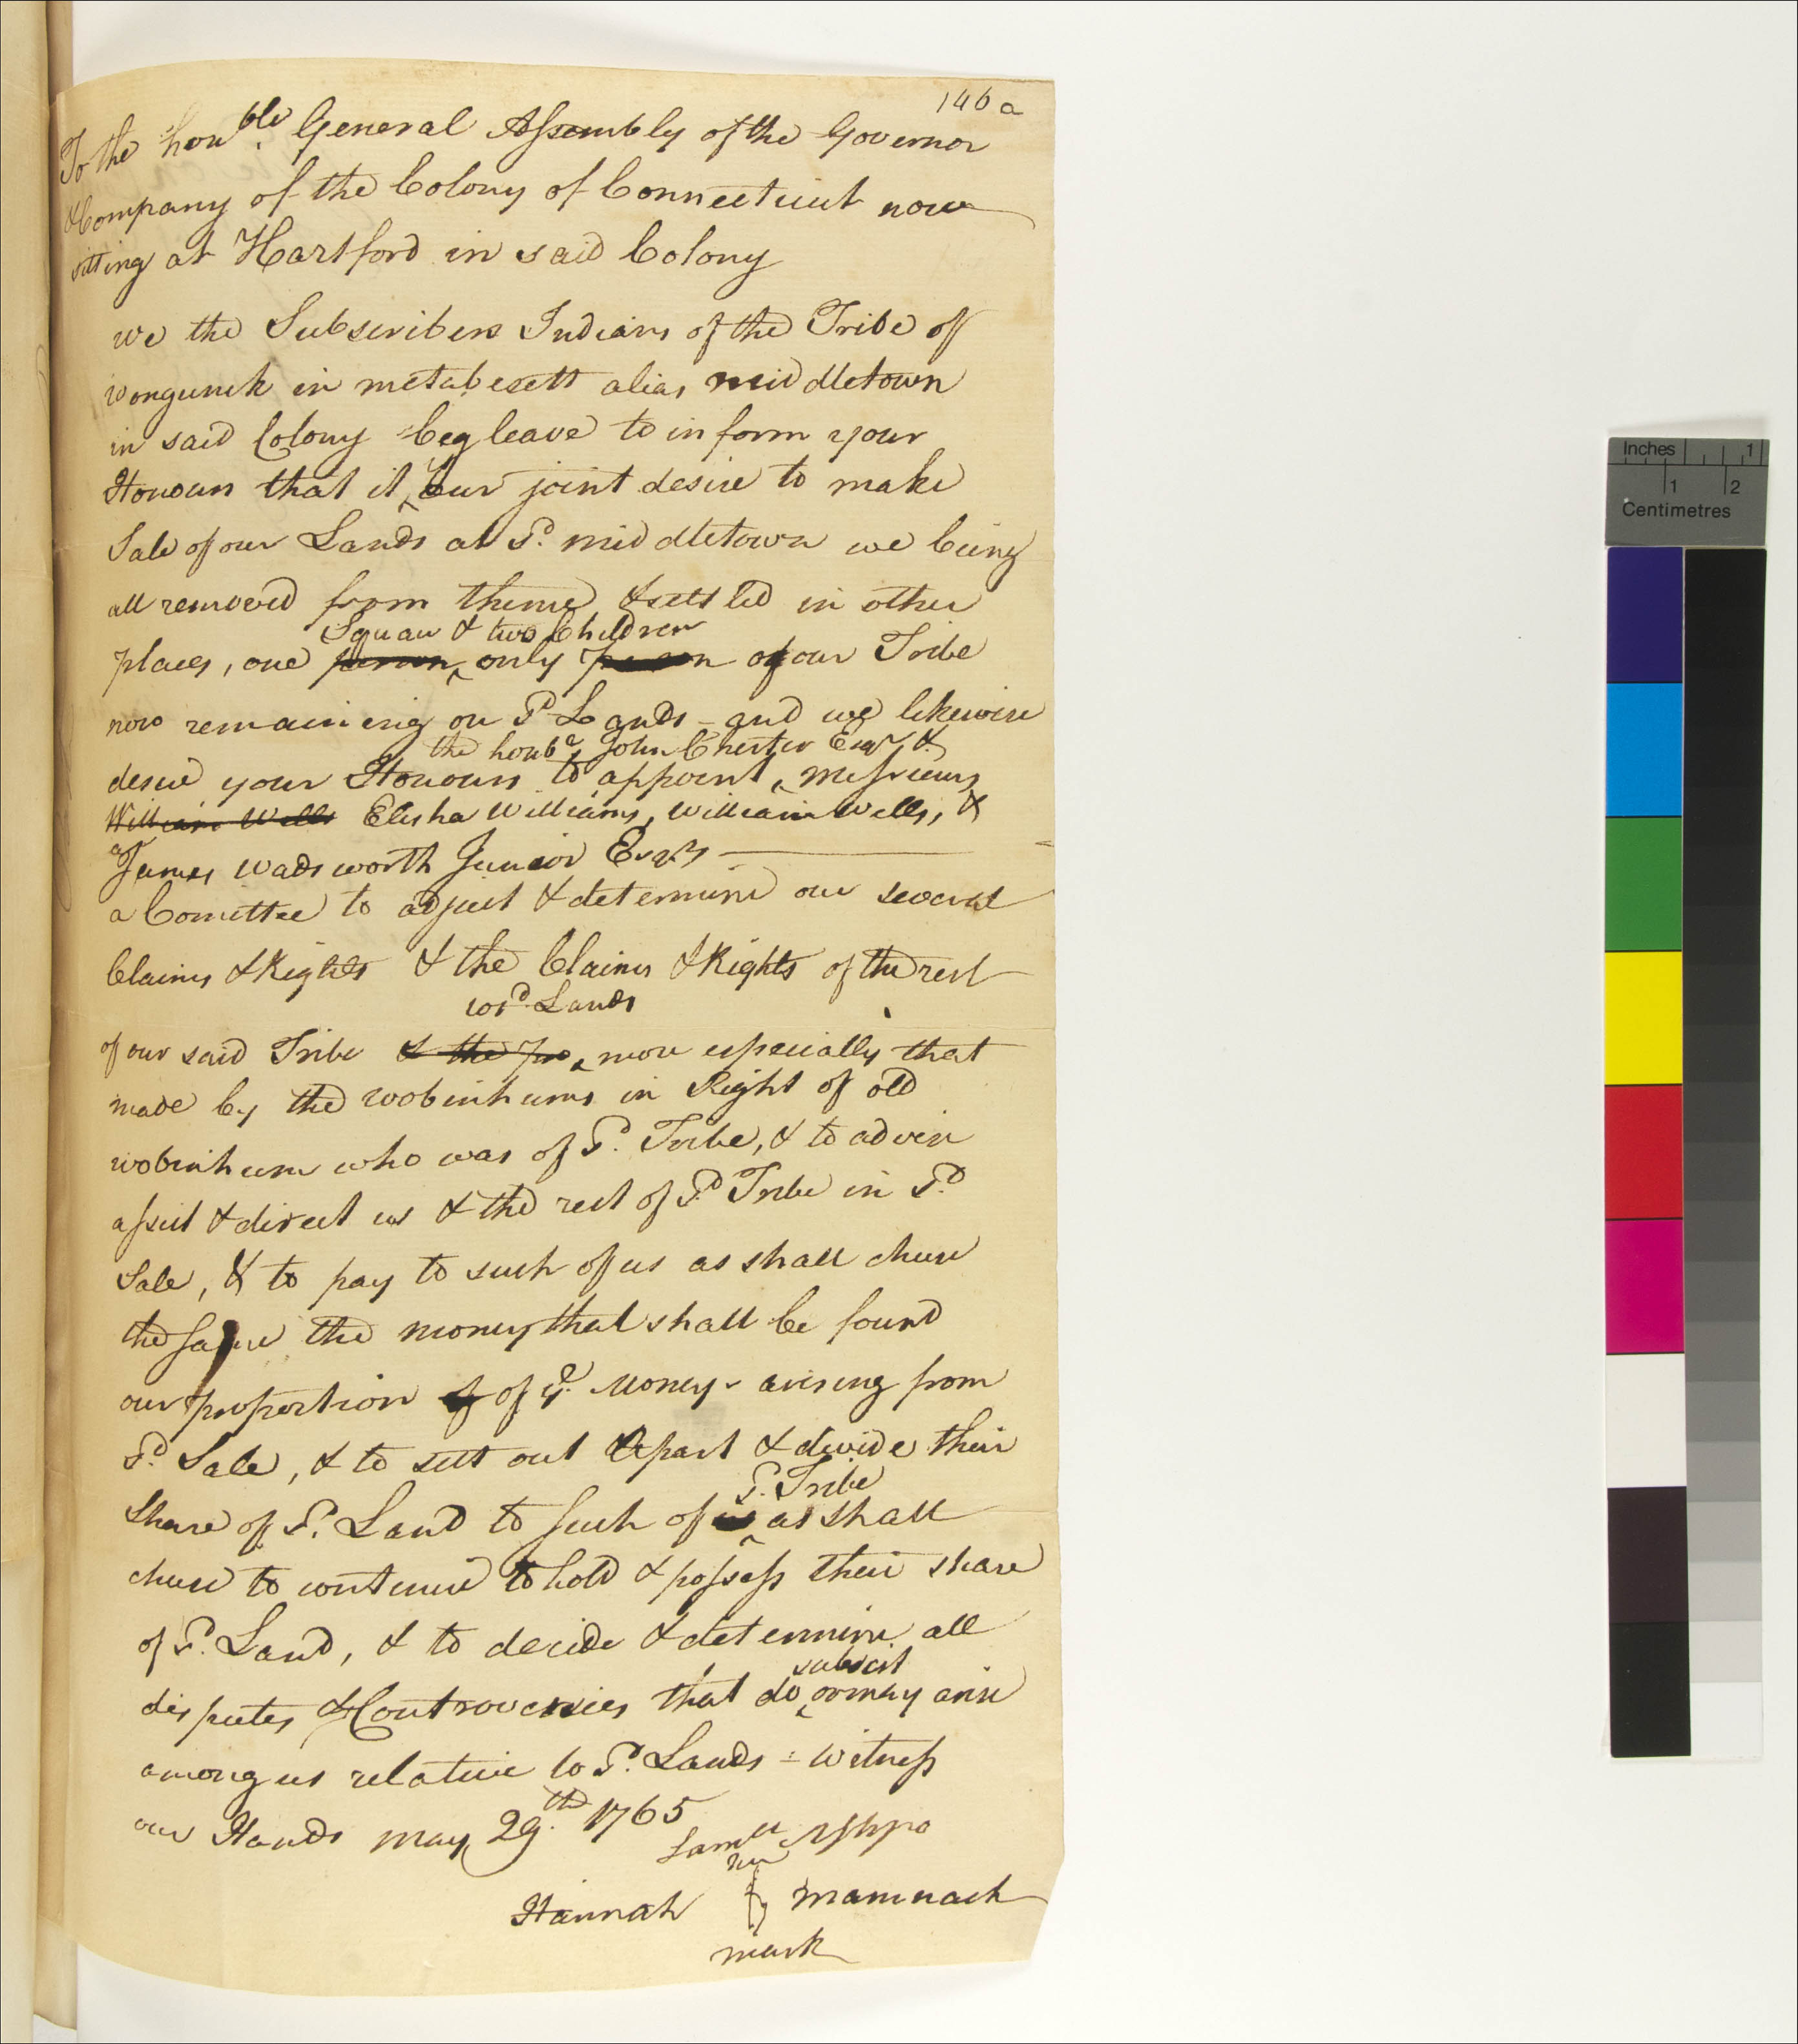 146 a
To the hon.ble General Assembly of the Governor
& Company of the Colony of Connecticut now
sitting at Hartford in said Colony
we the Subscribers Indians of the Tribe of
wongunck in metabesett alias middletown
in said Colony beg leave to inform your
Honours that it our joint desire to make
Sale of our Lands at Sd. middletown we being
all removed from thence & settled in other
Squaw & two Children
places, one person only person of our Tribe
now remaining on Sd Lands - and we likewise
the honble John Chester Esqr. &
desire your Honours to appoint messieurs
William Wells Elisha Williams, William Wells, &
James Wadsworth Junior Esqrs
a Comittee to adjust & determine our several
Claims & Rights & the Claims & Rights of the rest
to sd. Lands
of our said Tribe & the pro more especially that
made by the wobinhums in Right of old
wobinhum who was of Sd. Tribe, & to advise
assist & direct us & the rest of Sd Tribe in Sd
Sale, & to pay to such of us as shall chuse
the same the money that shall be found
our proportion of of Sd. Money - arising from
Sd. Sale, & to sett out Apart & divide their
Sd. Tribe
Share of Sd. Land to such of us as shall
chuse to continue to hold & possess their share
of Sd. Land, & to decide & determine all
subsist
disputes & Controversies that do or may arise
among us relative to Sd. Lands = Witness
our Hands may 29th. 1765
Samll Ashpo
her
Hannah Mamnash
mark